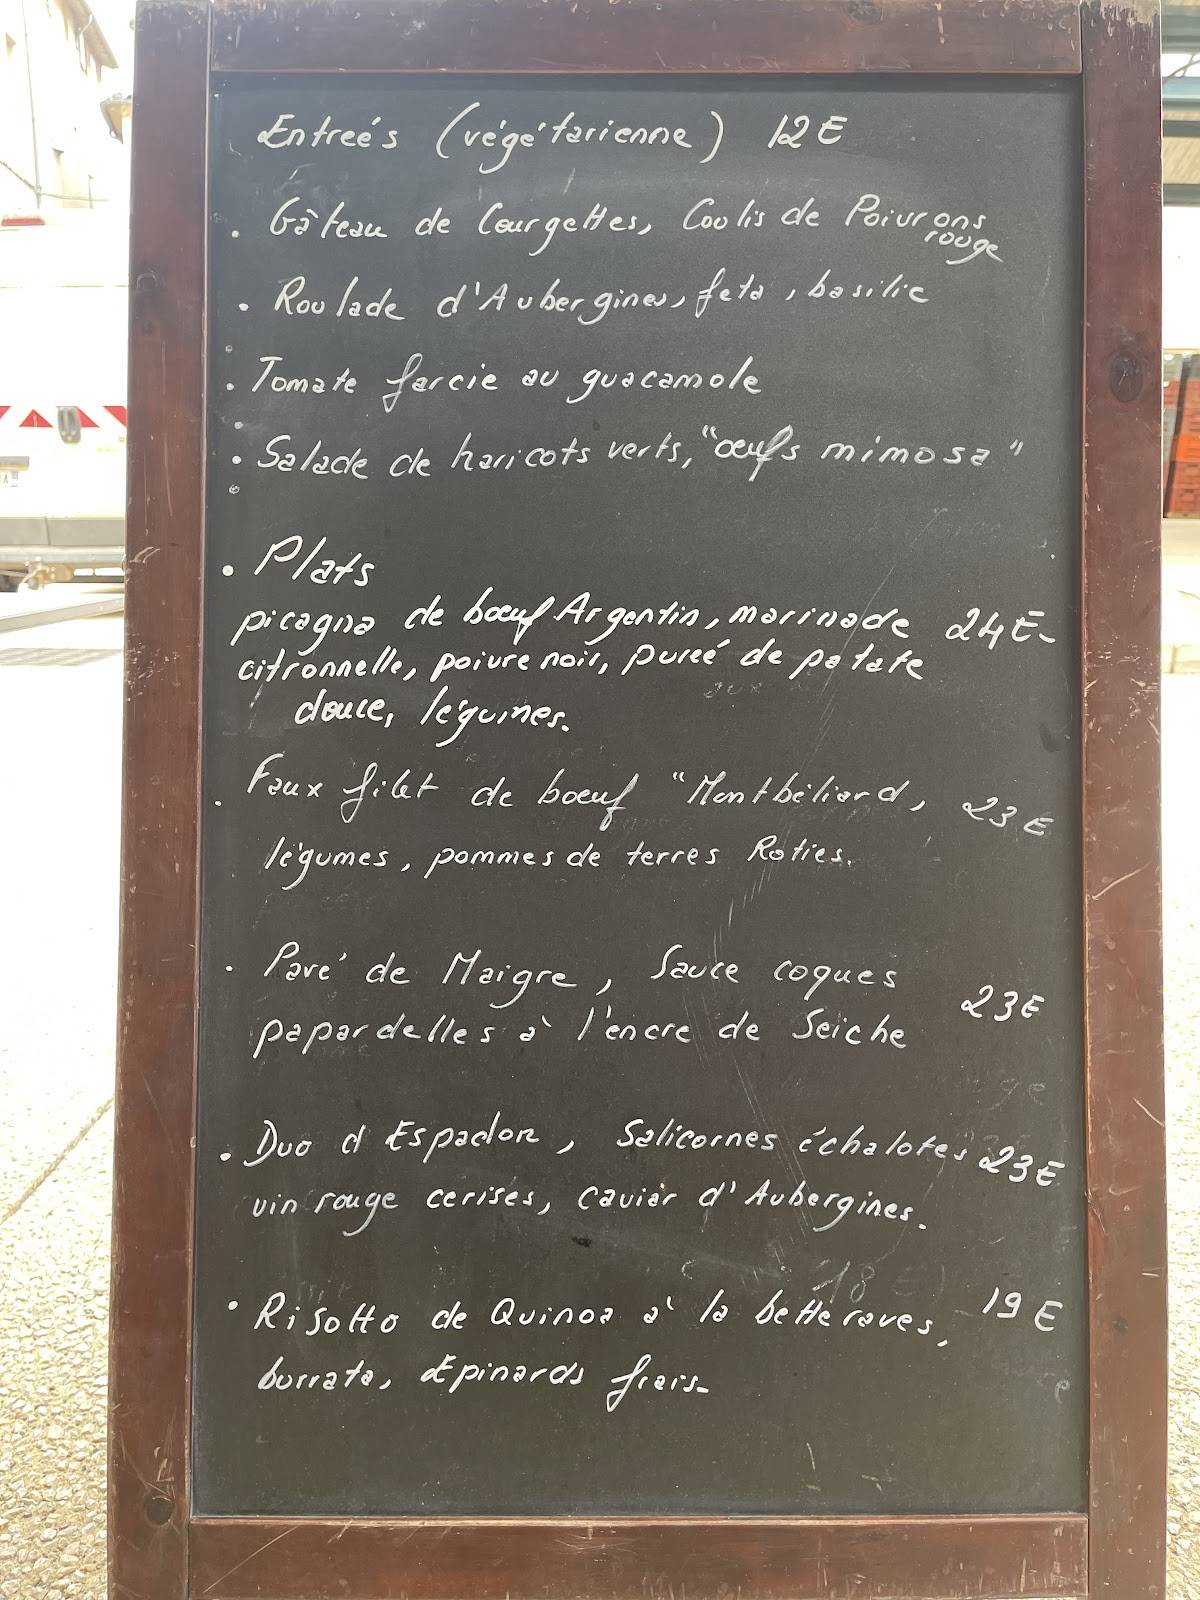 Entreés (végétarienne) 12E
. Gâteau de Courgettes, Coulis de Poivrons
rouge
. Roulade d'Aubergines, feta, basilic
. Tomate farcie au guacamole
. Salade de haricots verts, "œufs mimosa"
. Plats
picagna de bœuf Argentin, marinade 24E-
citronnelle, poivre noir, pureé de patate
douce, légumes.
. Faux filet de bœuf "Montbéliard, 23E
légumes, pommes de terres Roties.
. Pavé de Maigre, Sauce coques
papardelles à l'encre de Seiche 23E
. Duo d Espadon, Salicornes échalotes 23E
vin rouge cerises, caviar d'Aubergines.
. Risotto de Quinoa à la betteraves, 19E
burrata, Epinards frais-